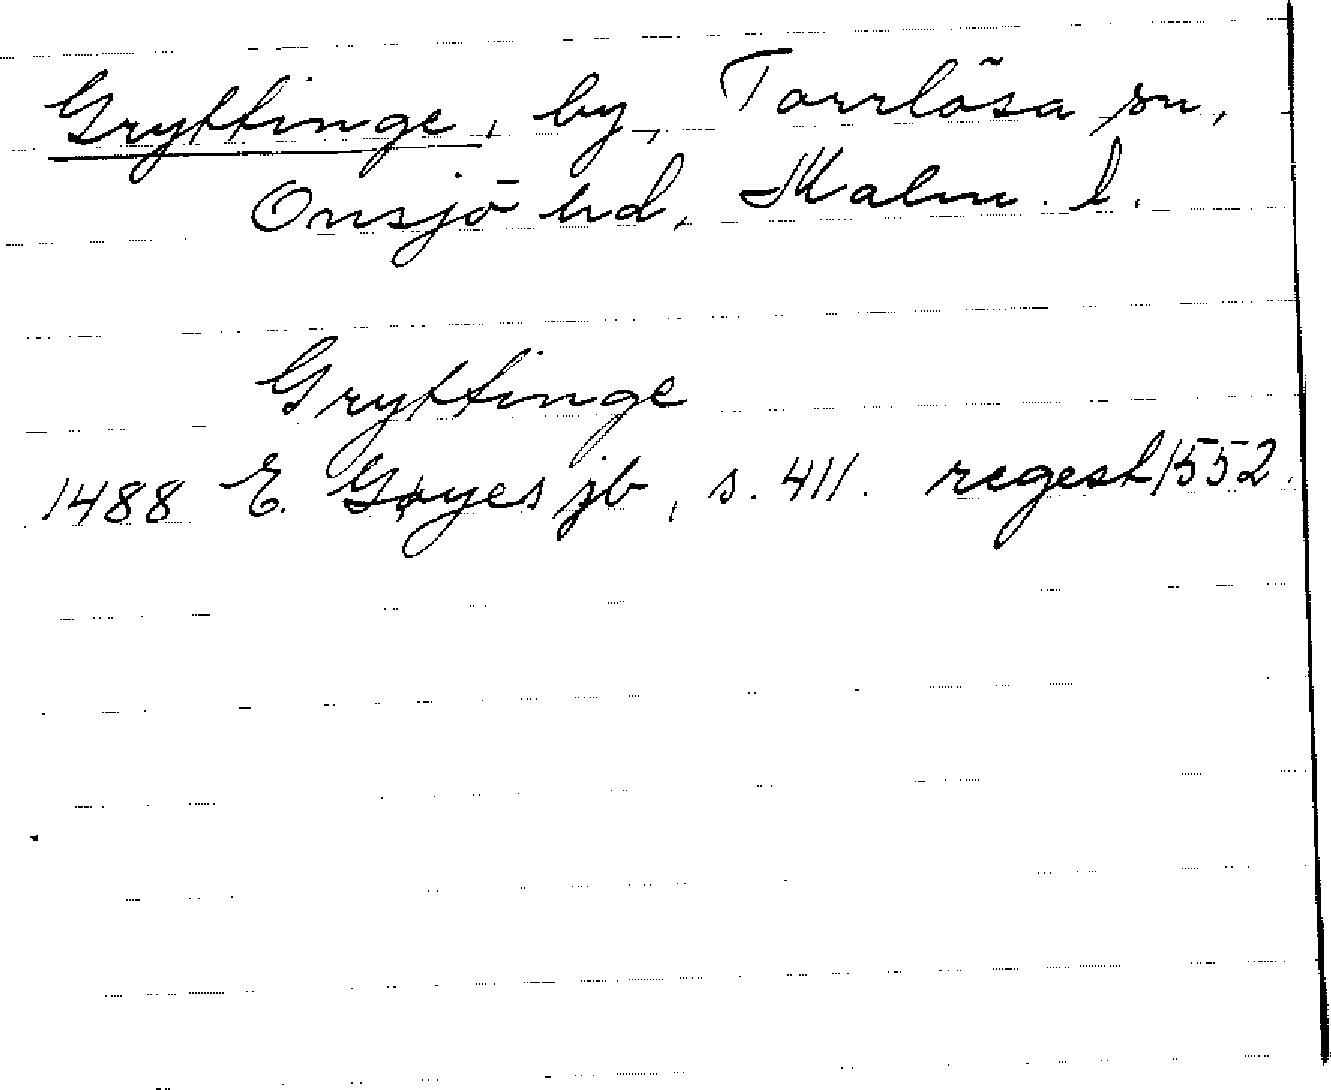 Gryttinge, by, Torrlösa sn,
Onsjö hd, Malm. l.
Gryttinge
1488 E. Gøyes jb, s. 411. regest 1552.